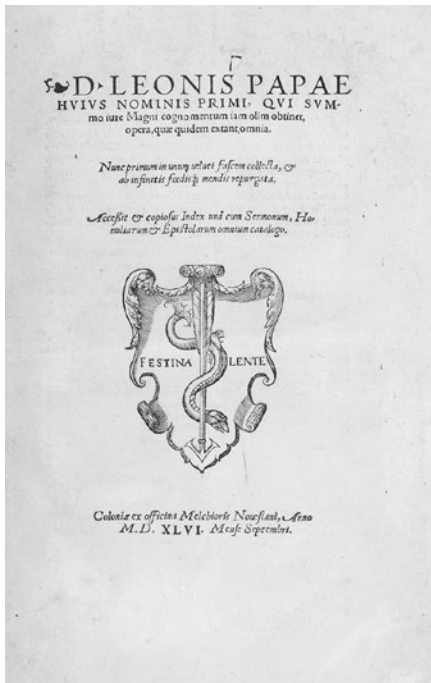 D. LEONIS PAPAE
HVIVS NOMINIS PRIMI, QVI SVM-
mo iure Magni cognomentum iam olim obtinet,
opera, quæ quidem extant, omnia.
Nunc primum in unum ueluti fascem collecta, &
ab infinitis fœdisq́; mendis repurgata.
Accessit & copiosus Index unà cum Sermonum, Ho-
miliarum & Epistolarum omnium catalogo.
FESTINA LENTE
Coloniæ ex officina Melchioris Nouesiani, Anno
M. D. XLVI. Mense Septembri.